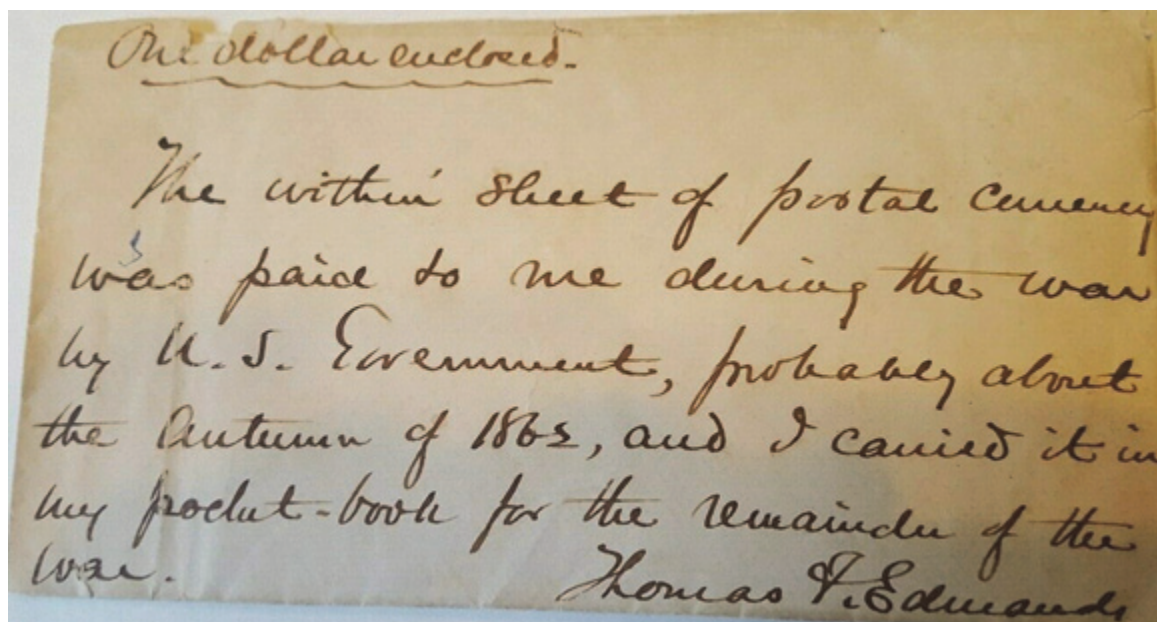 One dollar enclosed.
The within sheet of postal currency
was paid to me during the war
by U. S. Government, probably about
the Autumn of 1862, and I carried it in
my pocket-book for the remainder of the
war.
Thomas F. Edmands